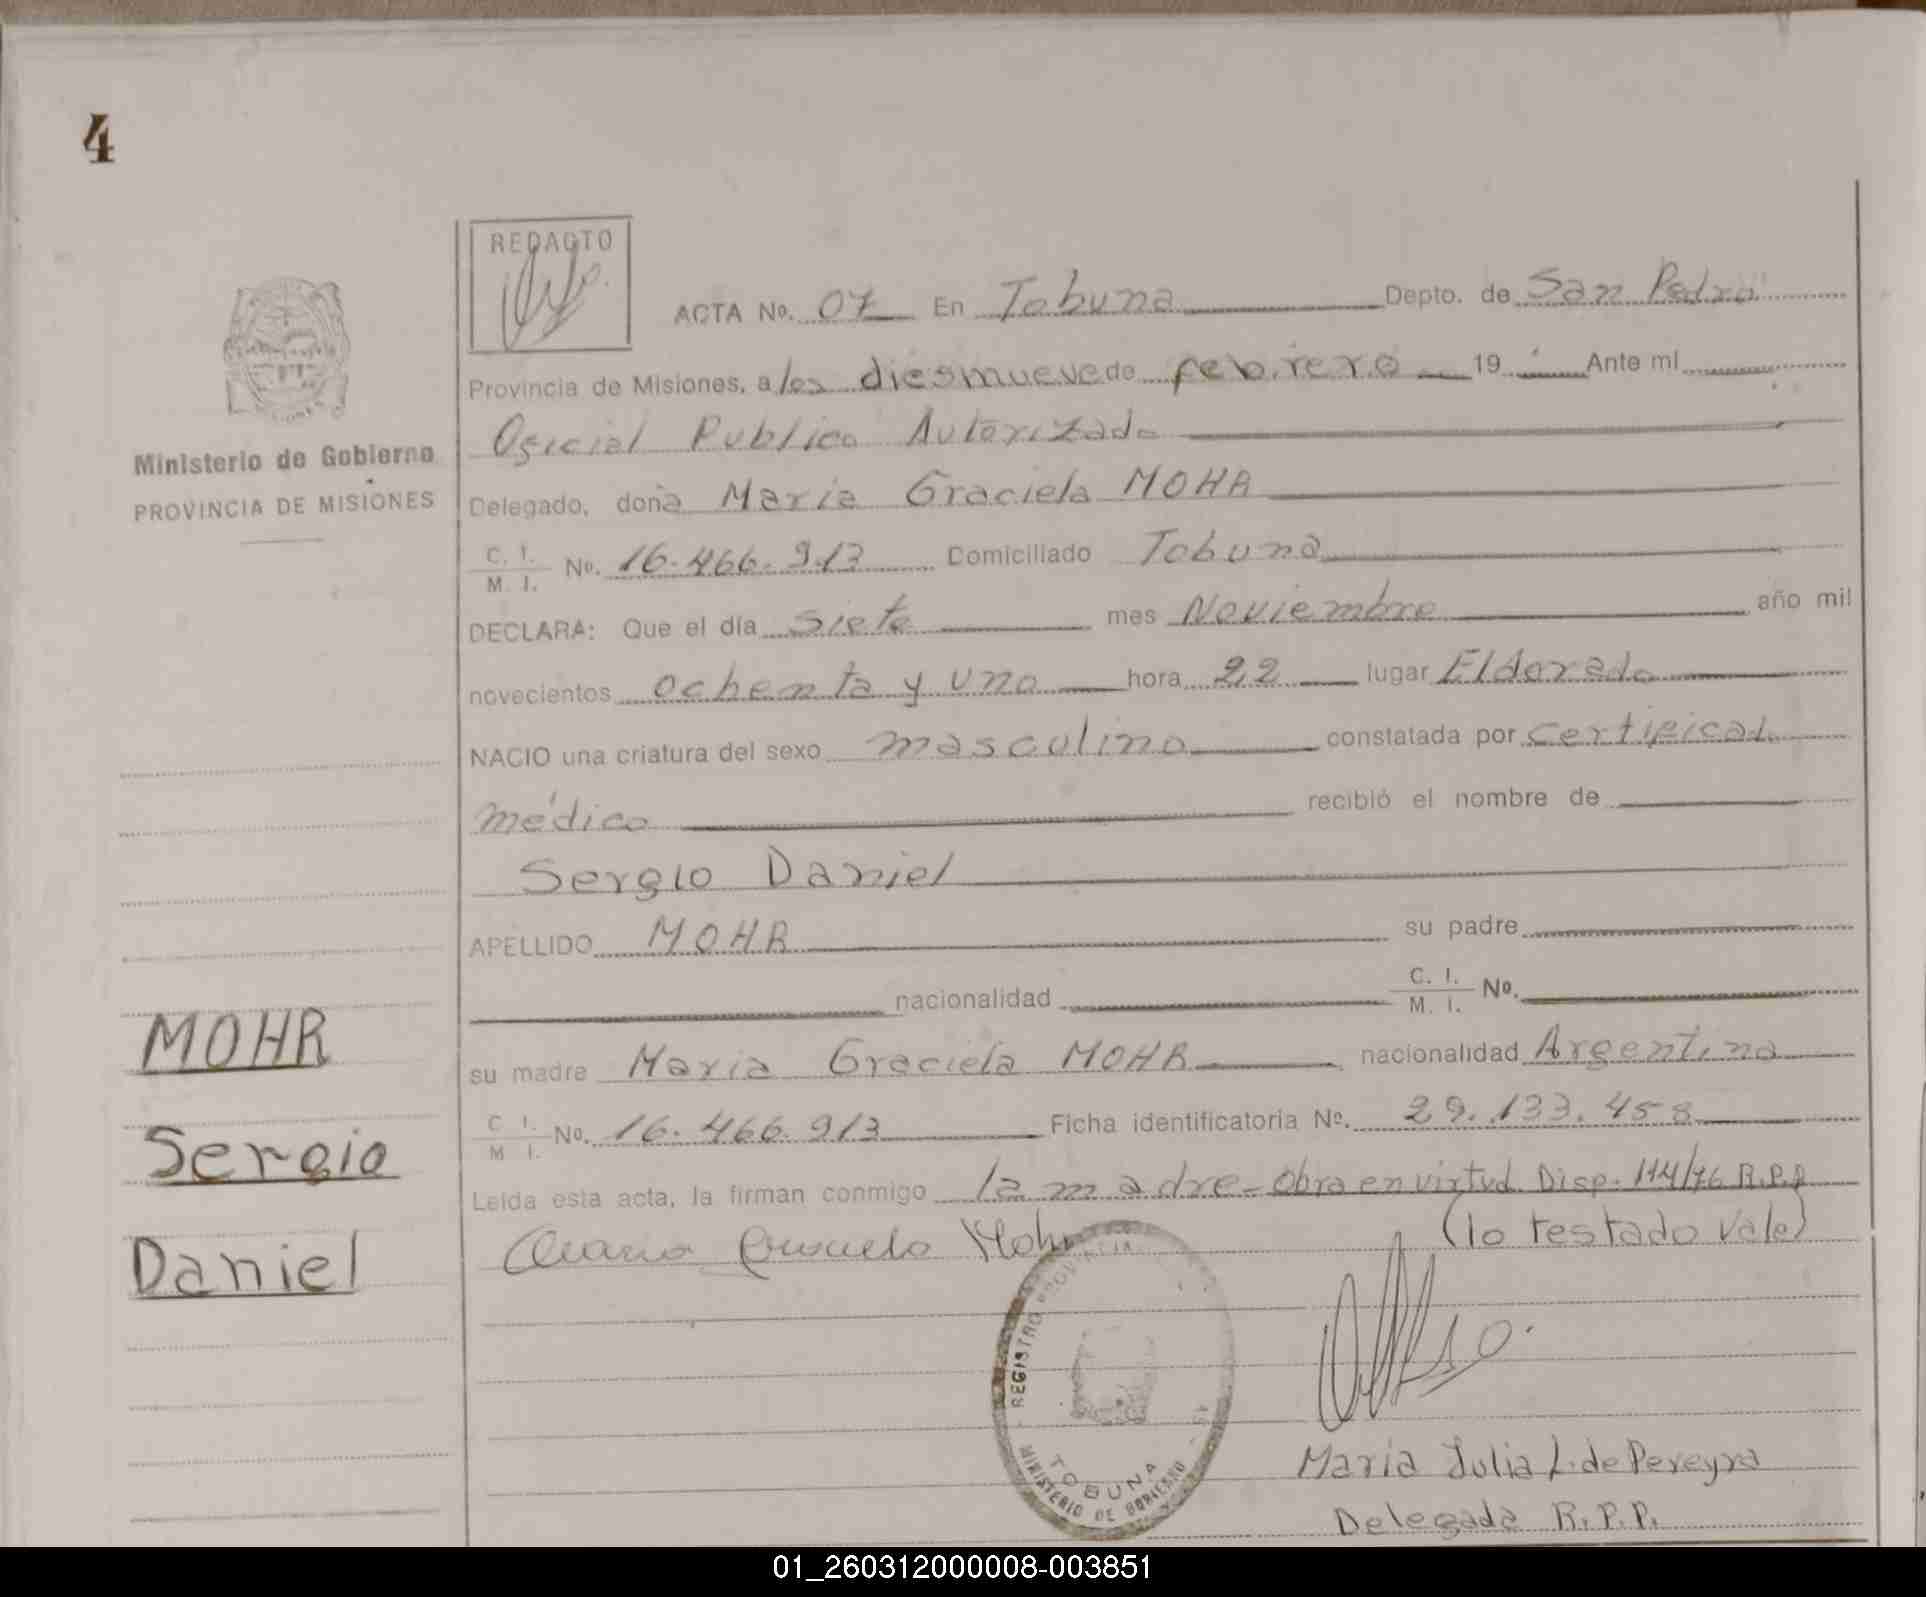 4
REDACTO
ACTA No. 07 En Tobuna Depto. de San Pedro
Provincia de Misiones, a los diesnueve de febrero 19 Ante mí
Oficial Publico Autorizado
Ministerio de Gobierno
PROVINCIA DE MISIONES
Delegado, doña Maria Graciela MOHR
C. I.
M. I. No. 16.466.913 Domiciliado Tobuna
DECLARA: Que el día siete mes Noviembre año mil
novecientos ochenta y uno hora 22 lugar Eldorado
NACIO una criatura del sexo masculino constatada por certificado
médico recibió el nombre de
Sergio Daniel
APELLIDO MOHR su padre
nacionalidad C. I.
M. I. No.
su madre Maria Graciela MOHR nacionalidad Argentina
C. I.
M. I. No. 16.466.913 Ficha identificatoria No. 29.133.458
Leída esta acta, la firman conmigo la madre - Obra en virtud Disp. 114/76 R.P.P
(lo testado vale)
MOHR
Sergio
Daniel
REGISTRO PROVINCIAL
TOBUNA
MINISTERIO DE GOBIERNO
Maria Julia L. de Pereyra
Delegada R.P.P.
01_260312000008-003851